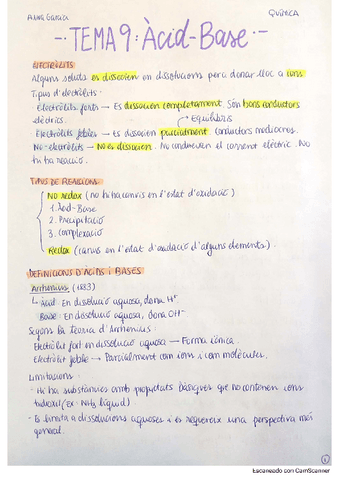 Anna Garcia
QUÍMICA
TEMA 9: Àcid-Base
ELECTRÒLITS
Alguns sòlids es dissocien en dissolucions per a donar lloc a ions
Tipus d'electròlits:
· Electròlits forts → Es dissocien completament. Són bons conductors
elèctrics.
→ Equilibris
· Electròlits febles → es dissocien parcialment. Conductors mediocres.
· No-electròlits → No es dissocien. No condueixen el corrent elèctric. No
hi ha reacció.
TIPUS DE REACCIONS
No redox (no hi ha canvis en l'estat d'oxidació)
1. Àcid-Base
2. Precipitació
3. Complexació
Redox (canvis en l'estat d'oxidació d'alguns elements).
DEFINICIONS D'ÀCIDS I BASES
Arrhenius (1883)
Àcid: En dissolució aquosa, dona H⁺
Base: En dissolució aquosa, dona OH⁻
Segons la teoria d'Arrhenius:
Electròlit fort en dissolució aquosa → Forma iònica.
Electròlit feble → Parcialment com ions i com molècules.
Limitacions:
- Hi ha substàncies amb propietats bàsiques que no contenen ions
hidroxil (Ex: NH₃ líquid)
- Es limita a dissolucions aquoses i es requereix una perspectiva més
general.
1
Escaneado con CamScanner